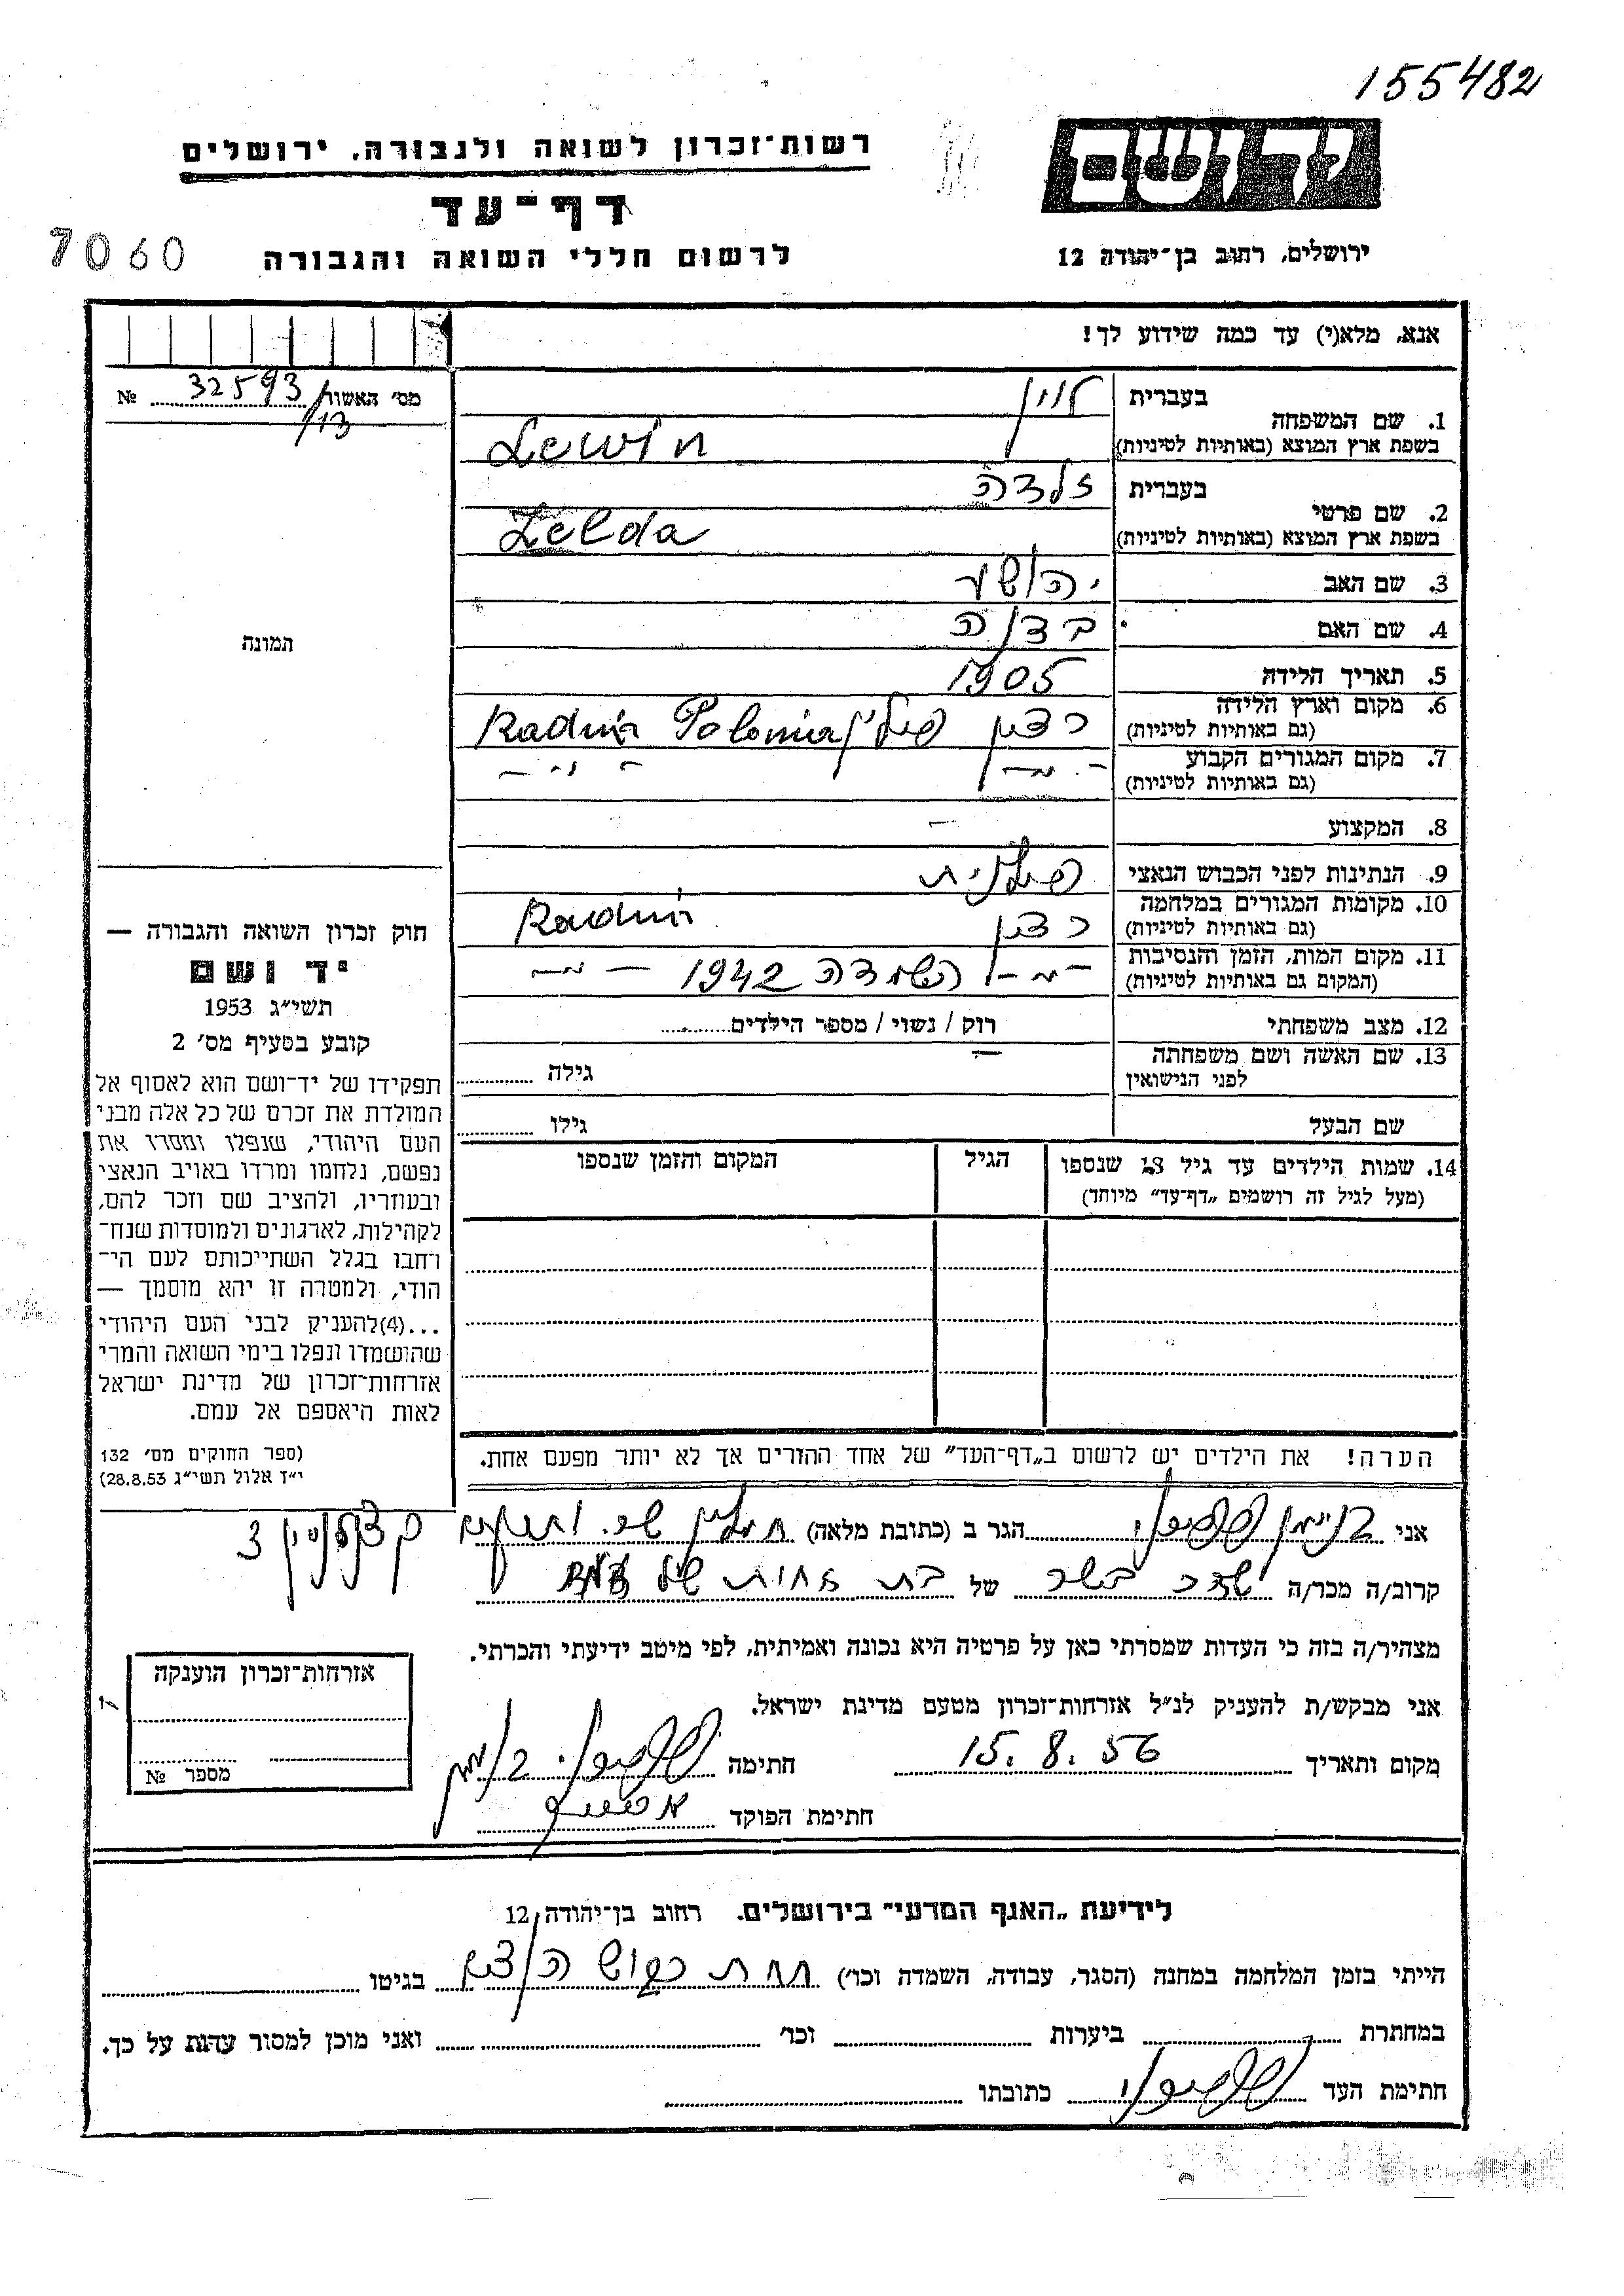 155482
יד ושם
רשות־זכרון לשואה ולגבורה, ירושלים
דף־עד
ירושלים, רחוב בן־יהודה 12
לרשום חללי השואה והגבורה
7060
אנא, מלא(י) עד כמה שידוע לך!
מס׳ האשור 32593/13 №
1. שם המשפחה
בעברית לוין
בשפת ארץ המוצא (באותיות לטיניות) Lewin
2. שם פרטי
בעברית זלדה
בשפת ארץ המוצא (באותיות לטיניות) Zelda
3. שם האב יהושע
4. שם האם
5. תאריך הלידה 1905
6. מקום וארץ הלידה
(גם באותיות לטיניות) רדון פולין Raduń Polonia
7. מקום המגורים הקבוע
(גם באותיות לטיניות) - " - - " -
8. המקצוע —
9. הנתינות לפני הכבוש הנאצי פולנית
10. מקומות המגורים במלחמה
(גם באותיות לטיניות) רדון Raduń
11. מקום המות, הזמן והנסיבות
(המקום גם באותיות לטיניות) - " - השמדה 1942 - " -
12. מצב משפחתי רוק / נשוי / מספר הילדים
13. שם האשה ושם משפחתה
לפני הנישואין — גילה
שם הבעל גילו
14. שמות הילדים עד גיל 18 שנספו הגיל המקום והזמן שנספו
(מעל לגיל זה רושמים „דף־עד” מיוחד)
הערה! את הילדים יש לרשום ב„דף־העד” של אחד ההורים אך לא יותר מפעם אחת.
תמונה
חוק זכרון השואה והגבורה —
יד ושם
תשי״ג 1953
קובע בסעיף מס׳ 2
תפקידו של יד־ושם הוא לאסוף אל
המולדת את זכרם של כל אלה מבני
העם היהודי, שנפלו ומסרו את
נפשם, נלחמו ומרדו באויב הנאצי
ובעוזריו, ולהציב שם וזכר להם,
לקהילות, לארגונים ולמוסדות שנח־
רחבו בגלל השתייכותם לעם הי־
הודי, ולמטרה זו יהא מוסמך —
...(4)להעניק לבני העם היהודי
שהושמדו ונפלו בימי השואה והמרי
אזרחות־זכרון של מדינת ישראל
לאות היאספם אל עמם.
(ספר החוקים מס׳ 132
י״ז אלול תשי״ג 28.8.53)
אני בנימין הגר ב (כתובת מלאה) שכ. 3
קרוב/ה מכר/ה שאר בשר של בת אחות של
מצהיר/ה בזה כי העדות שמסרתי כאן על פרטיה היא נכונה ואמיתית, לפי מיטב ידיעתי והכרתי.
אני מבקש/ת להעניק לנ״ל אזרחות־זכרון מטעם מדינת ישראל.
מקום ותאריך 15.8.56 חתימה
חתימת הפוקד
אזרחות־זכרון הוענקה
מספר №
לידיעת „האגף המדעי” בירושלים. רחוב בן־יהודה 12
הייתי בזמן המלחמה במחנה (הסגר, עבודה, השמדה וכו׳) תחת כבוש בגיטו
במחתרת ביערות וכו׳ ואני מוכן למסור עדות על כך.
חתימת העד כתובתו